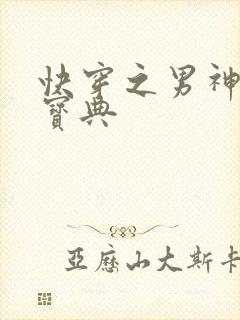 快穿之男神
寶典
亞歷山大斯卡